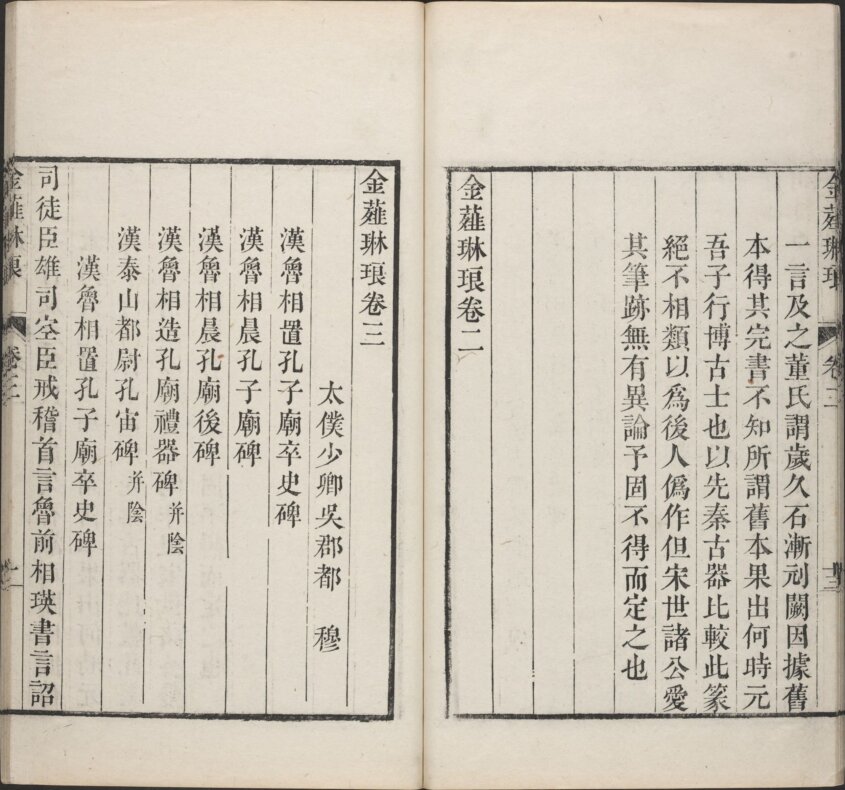 金薤琳琅
卷二
十三
一言及之董氏謂歲久石漸刓闕因據舊
本得其完書不知所謂舊本果出何時元
吾子行博古士也以先秦古器比較此篆
絕不相類以爲後人僞作但宋世諸公愛
其筆跡無有異論予固不得而定之也
金薤琳琅卷二
金薤琳琅卷三
太僕少卿吳郡都　穆
漢魯相置孔子廟卒史碑
漢魯相晨孔子廟碑
漢魯相晨孔廟後碑
漢魯相造孔廟禮器碑并陰
漢泰山都尉孔宙碑并陰
漢魯相置孔子廟卒史碑
司徒臣雄司空臣戒稽首言魯前相瑛書言詔
金薤琳琅
卷三
一